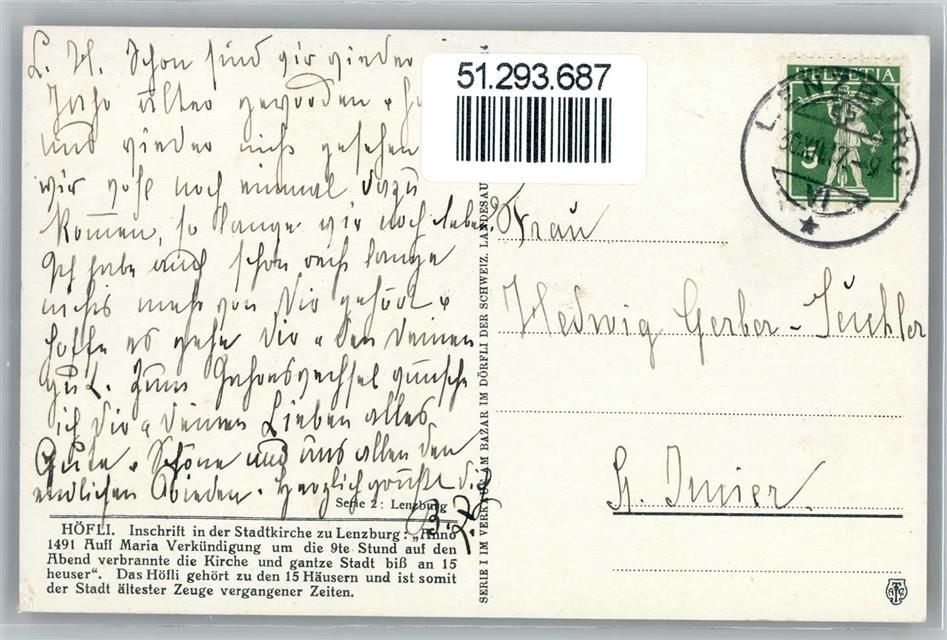 L. H. Schon sind wir wieder
Jahr älter geworden
und wieder nicht gesehen
wir hoffe noch einmal dazu
kommen, so lange wir noch leben?
Ich habe auch schon recht lange
nichts mehr von Dir gehört &
hoffe es gehe Dir & den Deinen
gut. Zum Jahreswechsel wünsche
ich Dir & Deinen Lieben alles
Gute & Schöne und uns allen den
endlichen Frieden. Herzlich grüsst dich
51.293.687
HELVETIA
5
LENZBURG
VI
Frau
Hedwig Gerber-
St. Imier
SERIE I IM VERKAUF AM BAZAR IM DÖRFLI DER SCHWEIZ. LANDESAU
Serie 2: Lenzburg
HÖFLI. Inschrift in der Stadtkirche zu Lenzburg: „Anno
1491 Auff Maria Verkündigung um die 9te Stund auf den
Abend verbrannte die Kirche und gantze Stadt biß an 15
heuser“. Das Höfli gehört zu den 15 Häusern und ist somit
der Stadt ältester Zeuge vergangener Zeiten.